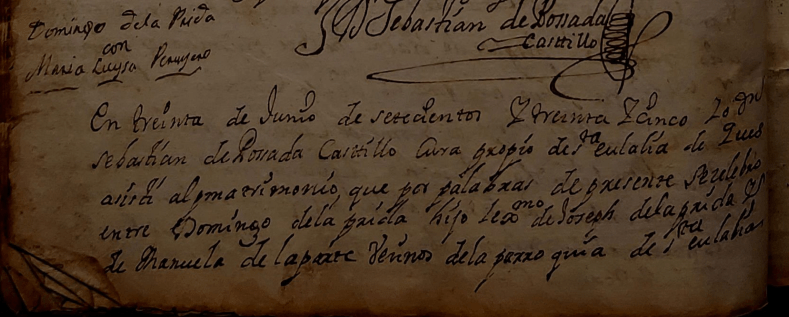 Domingo dela Prida
con
Maria Luysa Peruyero
Dn Sebastián de Possada
Casttillo
En treinta de Junio de setecientos y treinta y cinco Yo dn
Sebastian de Possada Casttillo Cura propio de sta eulalia de
asisti al matrimonio, que por palabras de presente se zelebró
entre Domingo dela prida hijo lexmo de Joseph dela prida y
de Manuela de la parte Vecinos dela parroquia de sta eulalia